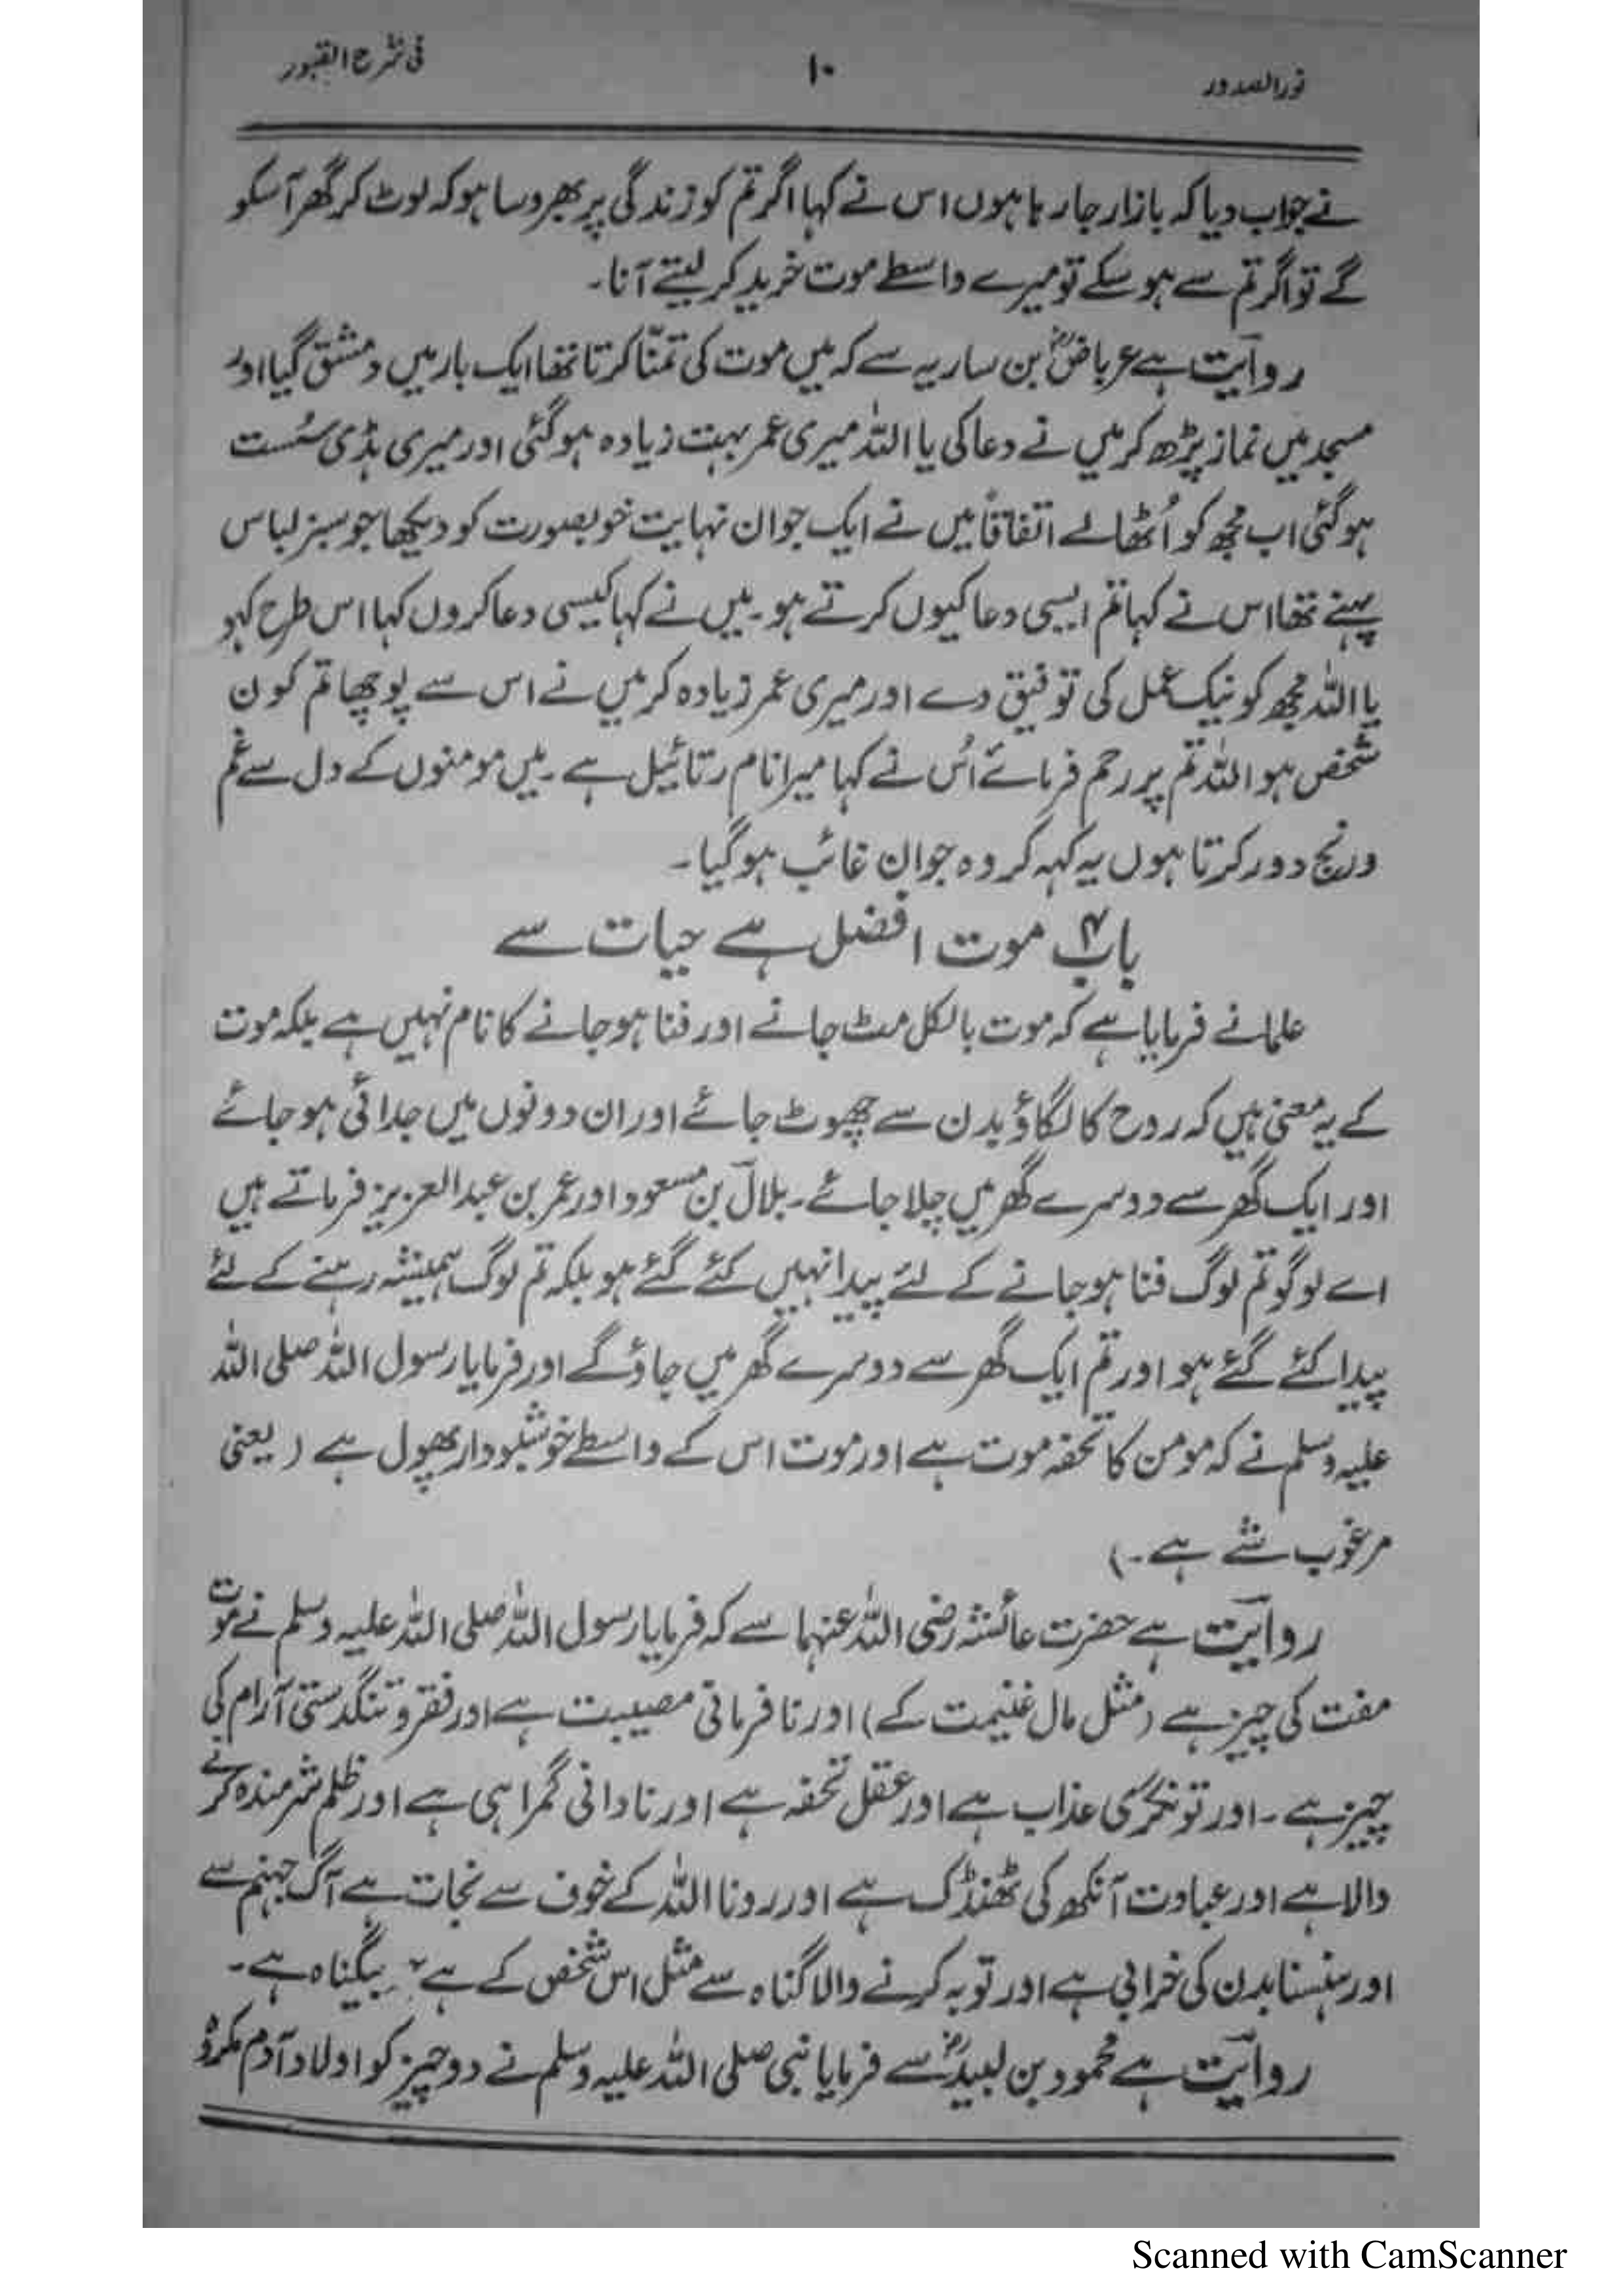 نور الصدور
۱۰
فی شرح القبور
نے جواب دیا کہ بازار جا رہا ہوں اس نے کہا اگر تم کو زندگی پر بھروسا ہو کہ لوٹ کر گھر آ سکو
گے تو اگر تم سے ہو سکے تو میرے واسطے موت خرید کر لیتے آنا۔
روایت ہے عرباضؓ بن ساریہ سے کہ میں موت کی تمنّا کرتا تھا ایک بار میں دمشق گیا اور
مسجد میں نماز پڑھ کر میں نے دعا کی یا اللہ میری عمر بہت زیادہ ہو گئی اور میری ہڈی سُست
ہو گئی اب مجھ کو اُٹھا لے اتفاقاً میں نے ایک جوان نہایت خوبصورت کو دیکھا جو سبز لباس
پہنے تھا اس نے کہا تم ایسی دعا کیوں کرتے ہو۔ میں نے کہا کیسی دعا کروں کہا اس طرح کہو
یا اللہ مجھ کو نیک عمل کی توفیق دے اور میری عمر زیادہ کر میں نے اس سے پوچھا تم کون
شخص ہو اللہ تم پر رحم فرمائے اُس نے کہا میرا نام رتائیل ہے۔ میں مومنوں کے دل سے غم
ورنج دور کرتا ہوں یہ کہہ کر وہ جوان غائب ہو گیا۔
باب ۴ موت افضل ہے حیات سے
علما نے فرمایا ہے کہ موت بالکل مٹ جانے اور فنا ہو جانے کا نام نہیں ہے بلکہ موت
کے یہ معنی ہیں کہ روح کا لگاؤ بدن سے چھوٹ جائے اور ان دونوں میں جدائی ہو جائے
اور ایک گھر سے دوسرے گھر میں چلا جائے۔ بلال بن مسعود اور عمر بن عبد العزیز فرماتے ہیں
اے لوگو تم لوگ فنا ہو جانے کے لئے پیدا نہیں کئے گئے ہو بلکہ تم لوگ ہمیشہ رہنے کے لئے
پیدا کئے گئے ہو اور تم ایک گھر سے دوسرے گھر میں جاؤ گے اور فرمایا رسول اللہ صلی اللہ
علیہ وسلم نے کہ مومن کا تحفہ موت ہے اور موت اس کے واسطے خوشبودار پھول ہے (یعنی
مرغوب شے ہے۔)
روایت ہے حضرت عائشہ رضی اللہ عنہا سے کہ فرمایا رسول اللہ صلی اللہ علیہ وسلم نے موت
مفت کی چیز ہے (مثل مال غنیمت کے) اور نافرمانی مصیبت ہے اور فقر و تنگدستی آرام کی
چیز ہے۔ اور تونگری عذاب ہے اور عقل تحفہ ہے اور نادانی گمراہی ہے اور ظلم شرمندہ کرنے
والا ہے اور عبادت آنکھ کی ٹھنڈک ہے اور رونا اللہ کے خوف سے نجات ہے آگ جہنم سے
اور ہنسنا بدن کی خرابی ہے اور توبہ کرنے والا گناہ سے مثل اس شخص کے ہے بیگناہ ہے۔
روایت ہے محمود بن لبیدؓ سے فرمایا نبی صلی اللہ علیہ وسلم نے دو چیز کو اولاد آدم مکروہ
Scanned with CamScanner